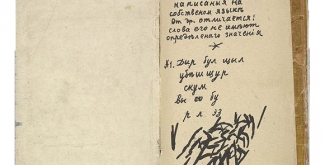 написания на
собственом языкѣ
от др. отличается:
слова его не имѣют
опредѣленаго значенія
№1. Дыр бул щыл
убѣшщур
скум
вы со бу
р л эз